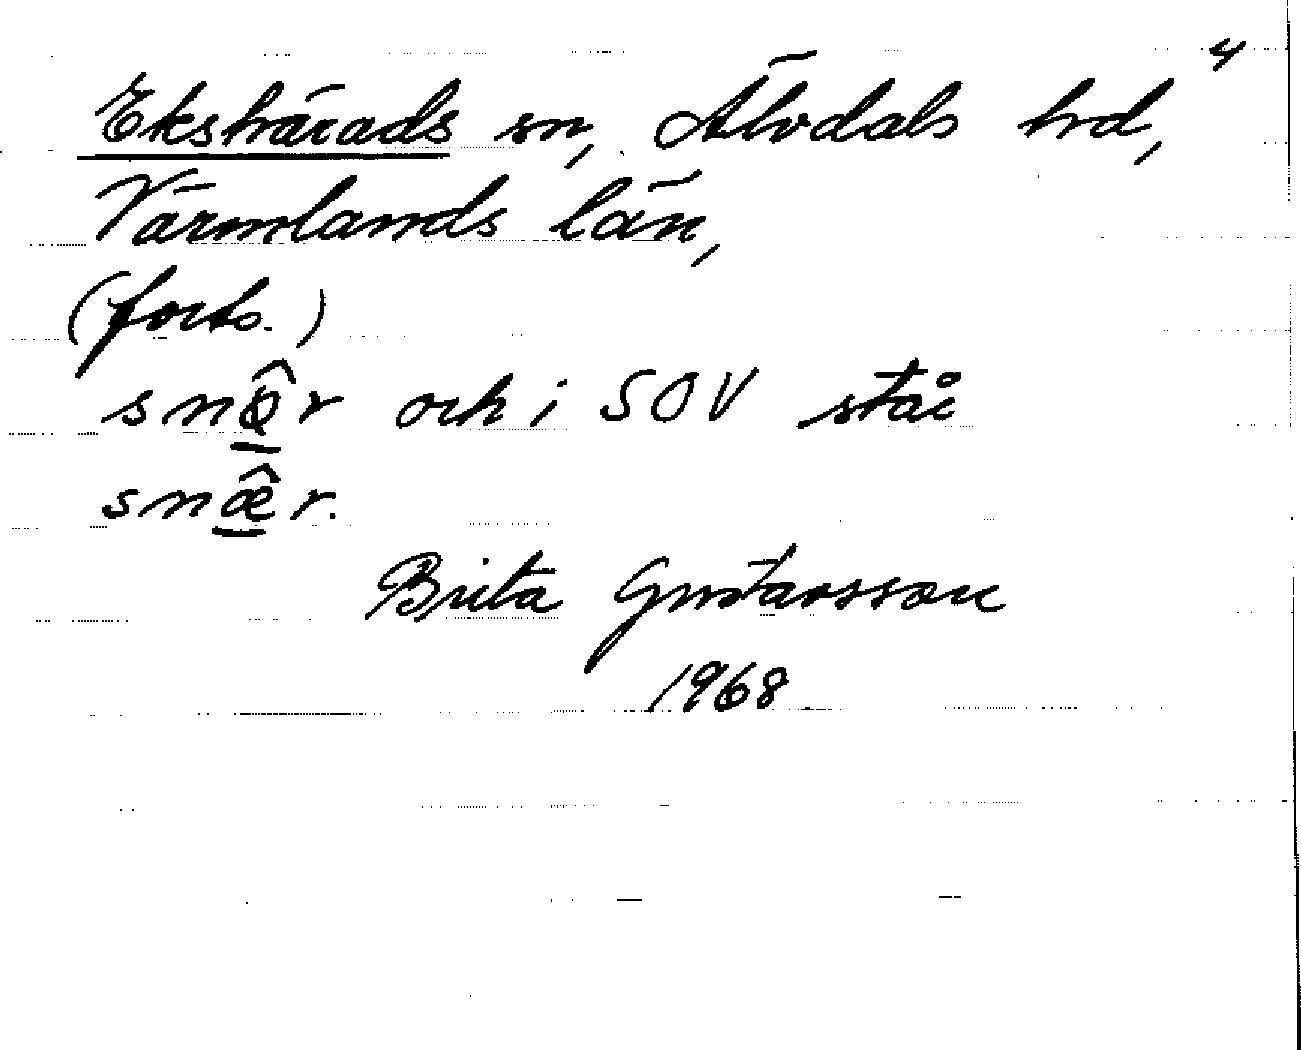 4
Ekshärads sn, Älvdals hd,
Värmlands län,
(forts.)
snö̲̂r och i SOV står
snæ̲̂r.
Brita Gustavsson
1968